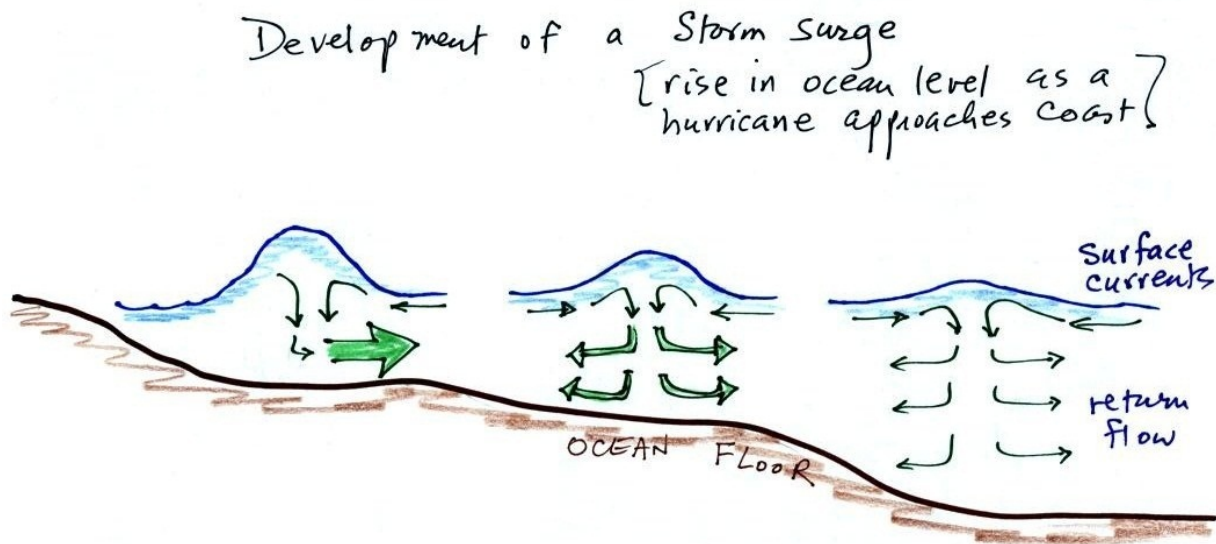 Development of a Storm Surge
[rise in ocean level as a
hurricane approaches coast]
surface
currents
return
flow
OCEAN FLOOR